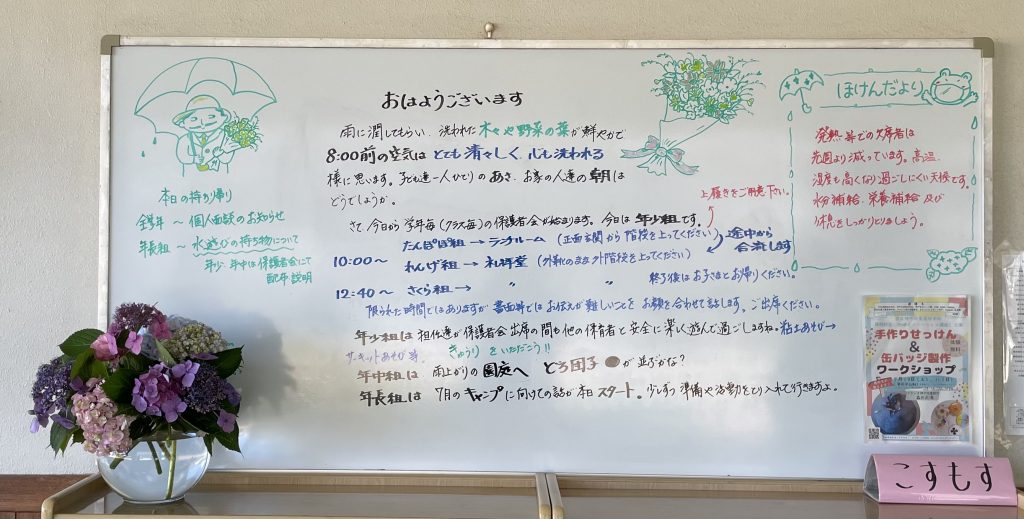 おはようございます
雨に潤してもらい、洗われた木々や野菜の葉が鮮やかで
8:00前の空気はとても清々しく、心も洗われる
様に思います。子ども達一人ひとりのあさ、お家の人達の朝は
どうでしょうか。
さて今日から学年毎(クラス毎)の保護者会が始まります。今日は年少組です。
上履きをご用意下さい。
たんぽぽ組→ランチルーム(正面玄関から階段を上ってください)
途中から
合流します
10:00〜 れんげ組→礼拝堂(外靴のまま外階段を上ってください)
12:40〜 さくら組→ 〃 〃 終了後はお子さまとお帰りください。
限られた時間ではありますが書面等ではお伝えが難しいことをお顔を合わせて話します。ご出席ください。
年少組は担任達が保護者会出席の間も他の保育者と安全に楽しく遊んで過ごしますね。粘土あそび→
サーキットあそび等 きゅうりをいただこう!!
年中組は 雨上がりの園庭へ どろ団子●が並ぶかな?
年長組は 7月のキャンプに向けての話が本日スタート。少しずつ準備や活動をとり入れて行きますよ。
本日の持ち帰り
全学年〜個人面談のお知らせ
年長組〜水遊びの持ち物について
年少、年中は保護者会にて
配布、説明
ほけんだより
発熱等での欠席者は
先週より減っています。高温、
湿度も高くなり過ごしにくい天候です。
水分補給、栄養補給及び
休息をしっかりとりましょう。
手作りせっけん
&
缶バッジ製作
ワークショップ
こすもす